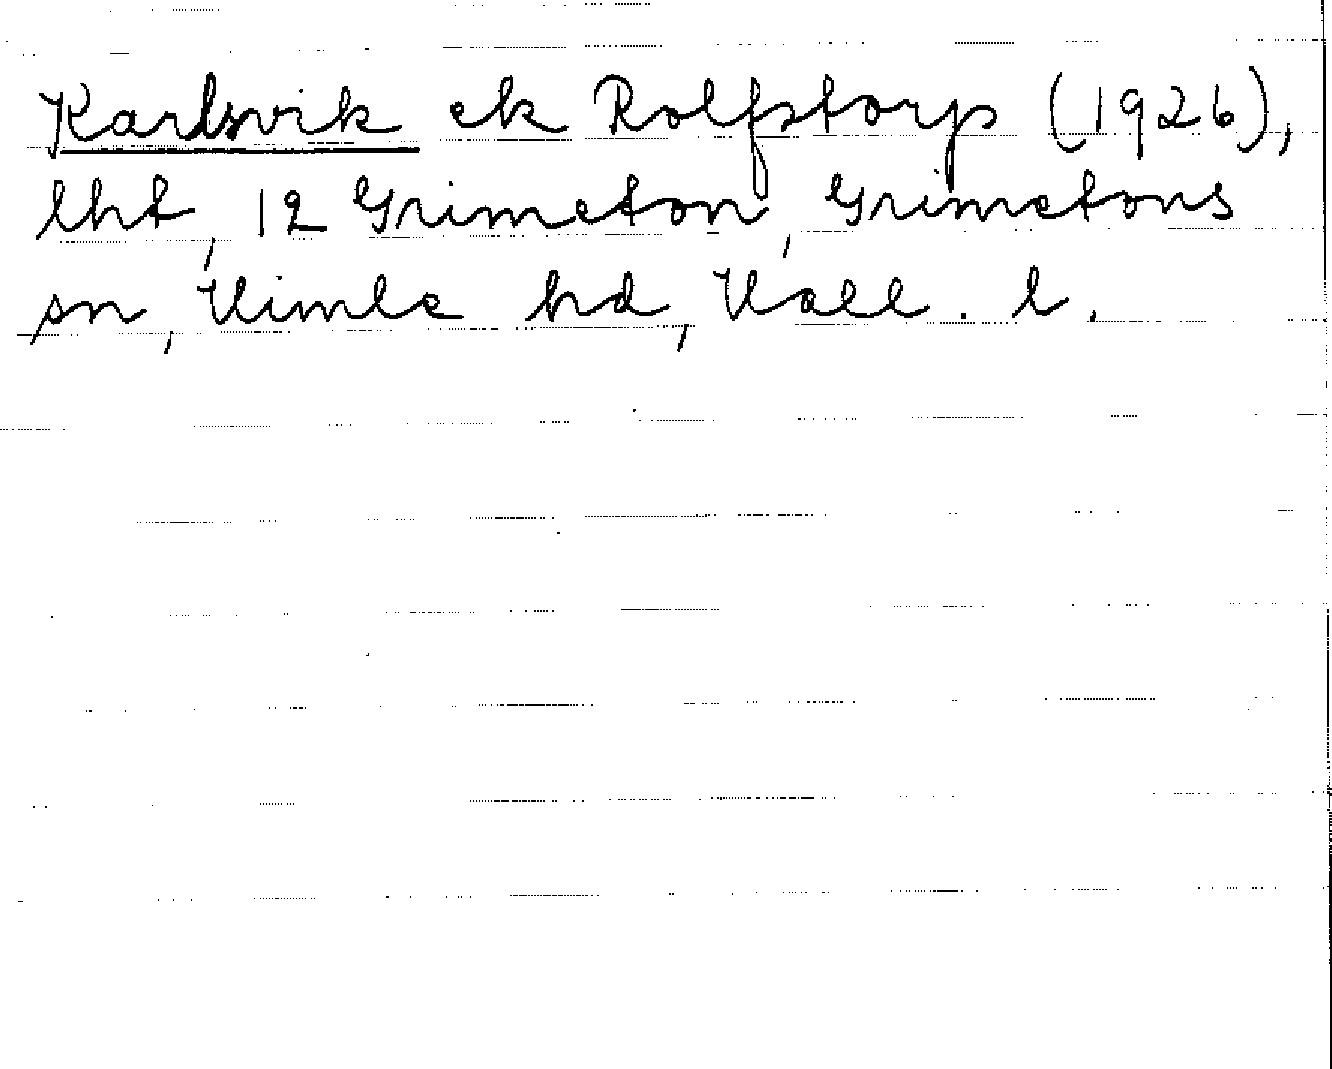 Karlsvik ek Rolfstorp (1926),
lht, 12 Grimeton, Grimetons
sn, Himle hd, Hall. l.